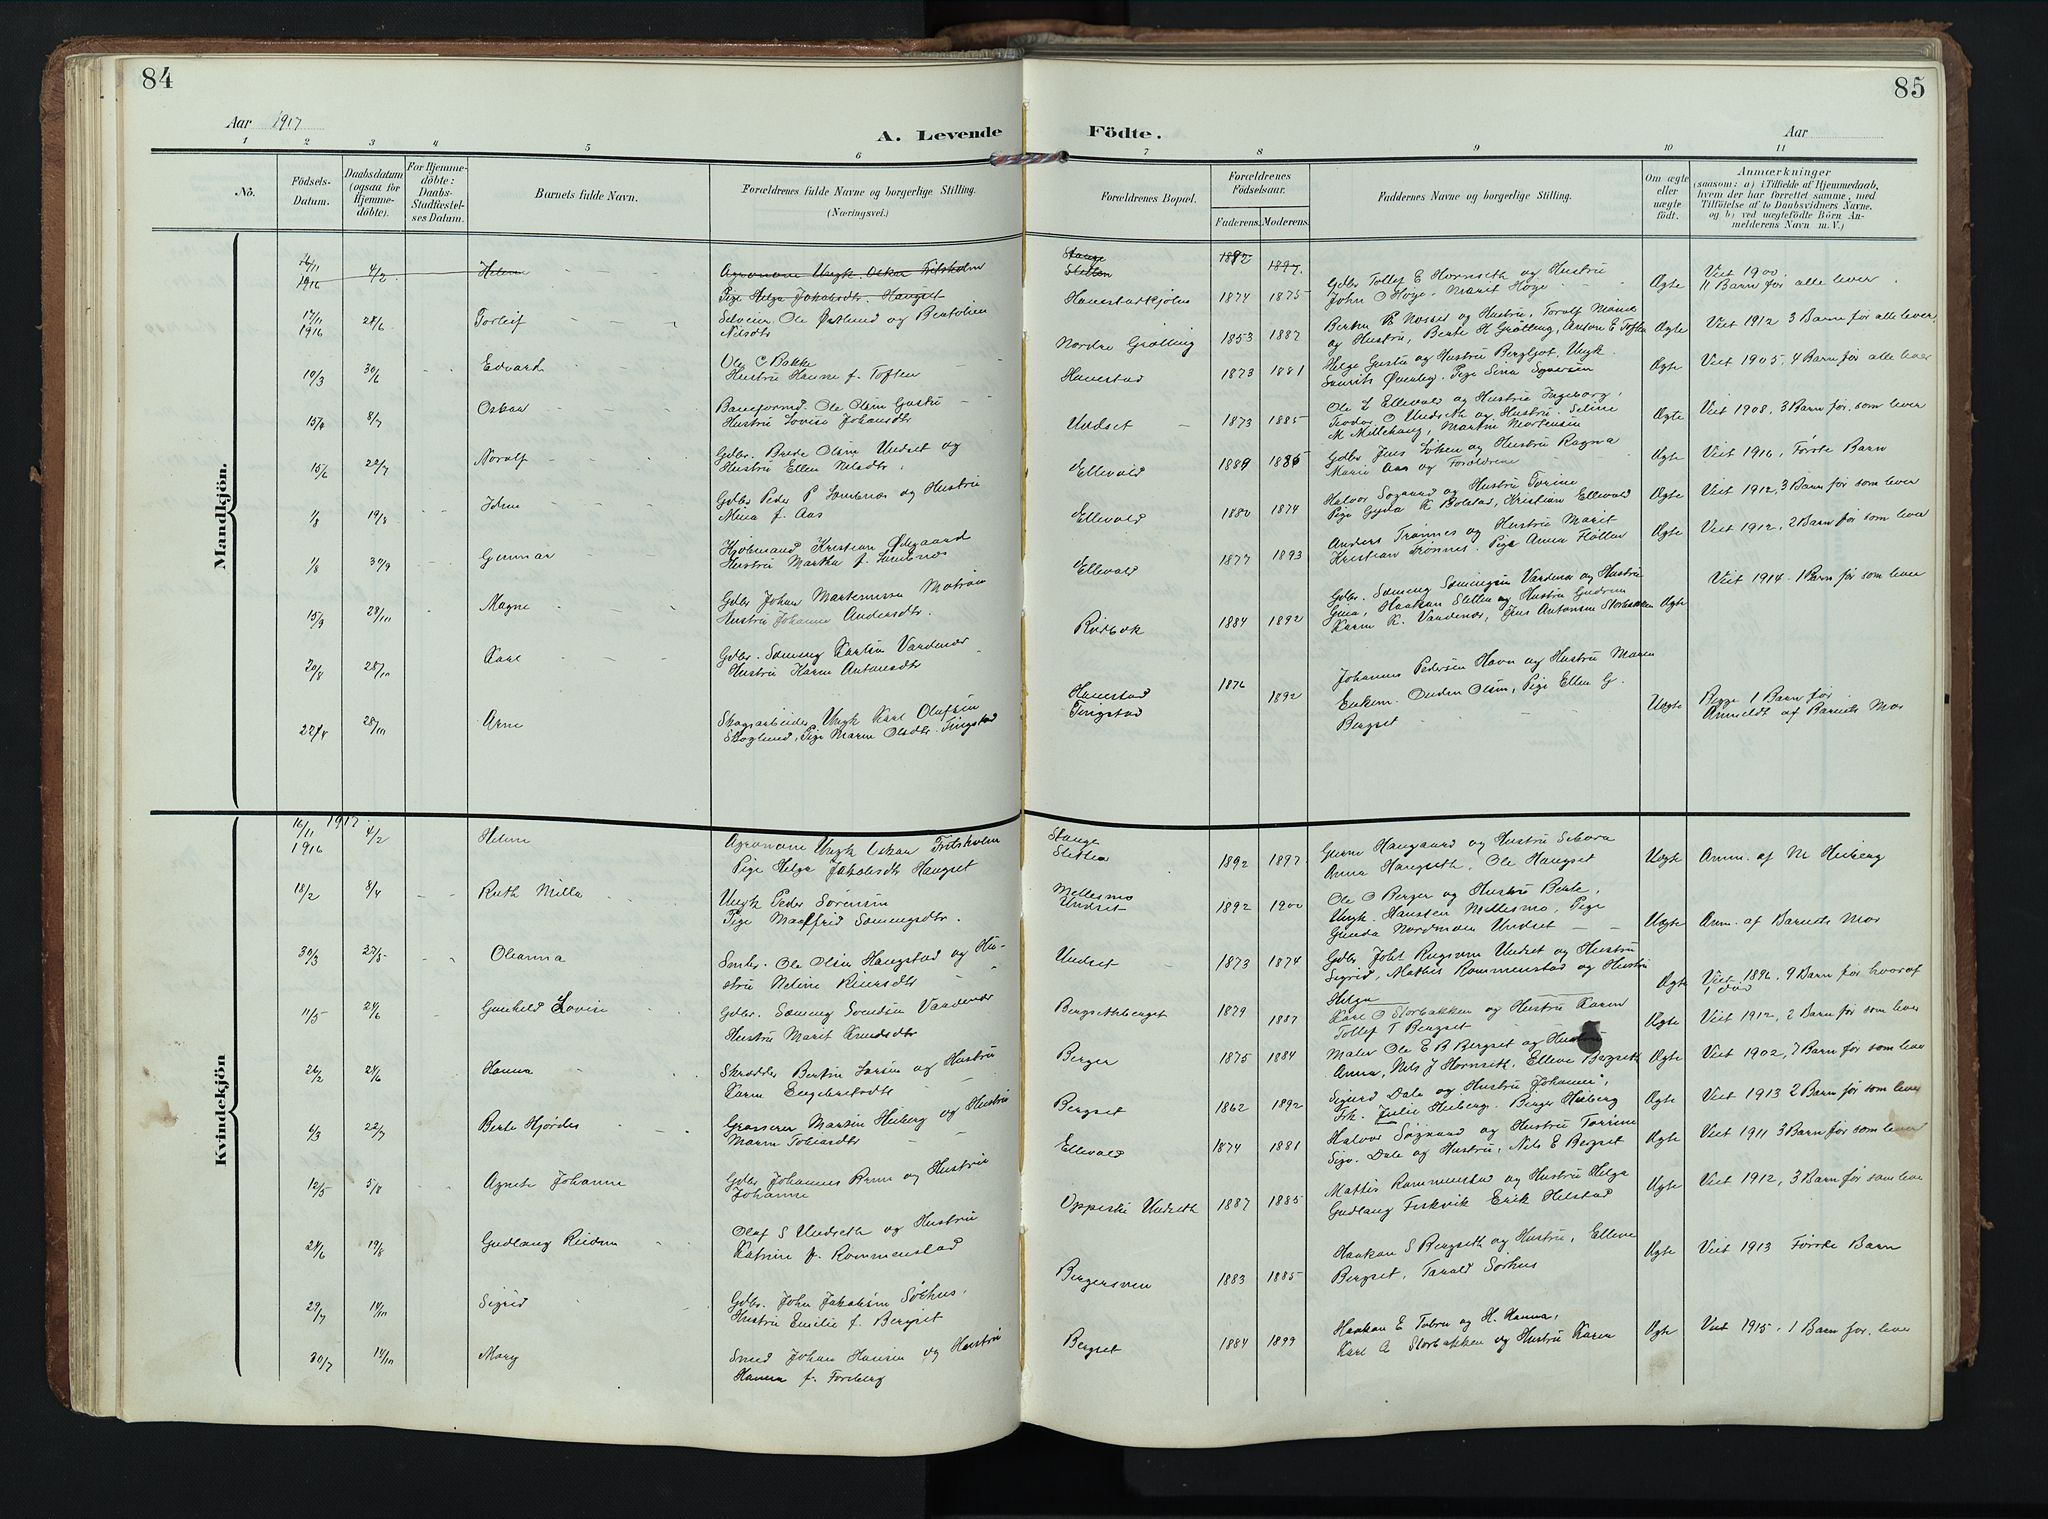 84
85
Aar 1917
A. Levende
Födte.
Aar
1 2 3 4 5 6 7 8 9 10 11
No.
Födsels-
Datum.
Daabsdatum
(ogsaa för
Hjemme-
döbte).
For Hjemme-
döbte:
Daabs-
Stadfæstel-
ses Datum.
Barnets fulde Navn.
Forældrenes fulde Navne og borgerlige Stilling.
(Næringsvei.)
Forældrenes Bopæl.
Forældrenes
Födselsaar.
Faderens. Moderens.
Faddernes Navne og borgerlige Stilling.
Om ægte
eller
uægte
födt.
Anmærkninger
(saasom: a) i Tilfælde af Hjemmedaab,
hvem der har forrettet samme, med
Tilföielse af to Daabsvidners Navne.
og b) ved uægtefödte Börn An-
melderens Navn m. V.)
Mandkjön.
16/11 1916 4/2 Helene
Agronom Ungk Oskar Fritsholm
Pige Helga Jakobsdtr. Haugset
Stange
Sletten
1892 1897
17/11 1916 24/6 Torleif
Selveier. Ole Østlund og Bertolin
Nilsdtr
Hanestadkjølen 1874 1875
Gdbr Tollef E Hornseth og Hustru
John O Høye, Marit Høye
Ægte
Viet 1900.
11 Barn før alle lever
10/3 30/6 Edvard
Ole C Bakke
Hustru Hanne f. Toften
Nordre Grøtting 1853 1887
og Hustru, Berte H Grøtting, Anton E Toften
Ægte Viet 1912 3 Barn før alle lever
15/4 8/7 Oskar
Baneformd. Ole Olsen Gustu
Hustru Lovise Johansdtr
Hanestad 1873 1881
Helge Gustu og Hustru Bergljot, Ungk.
Laurits Øvenley, Pige Sina Syversen
Ægte Viet 1905, 4 Barn før alle lever
15/6 22/7 Noralf
Gdbr. Brede Olsen Undset og
Hustru Ellen Nilsdtr.
Undset 1873 1885
Ole L Ellevold og Hustru Ingeborg,
Teodor O Undseth og Hustru. Seline
M Millehaug, Martin Mortensen
Ægte Viet 1908, 3 Barn før, som lever
1/8 19/8 Johan
Gdbr Peder P Lombnæs og Hustru
Mina f. Aas
Ellevold 1889 1886
Gdbr Jens Løken og Hustru Ragna
Marie Aas og Forældrene
Ægte Viet 1916, Første Barn
1/8 30/9 Gunnar
Hjulmand Kristian Ødegaard
Hustru Martha f. Lombnæs
Ellevold 1880 1874
Halvor Søgaard og Hustru Torine
Pige Gyda K Bolstad, Kristian Ellevold
Ægte Viet 1912, 3 Barn før som lever
15/9 28/10 Magne
Gdbr Johan Martinussen Motrøen
Hustru Johanne Andersdtr.
Ellevold 1877 1893
Anders Trønnes og Hustru Marit
Kristian Trønnes. Pige Anna Fløtten
Ægte Viet 1912, 2 Barn før som lever
20/8 28/10 Karl
Gdbr. Sæming Karlsen Vardenær
Hustru Karen Antonsdtr
Rødbæk 1884 1892
Gdbr. Sæming Sæmingsen Vardenær og Hustru
Gina, Haakon Sletten og Hustru Gudrun
Karen K. Vardenær, Jens Antonsen Storbækken
Ægte
Viet 1914. 1 Barn før som lever
22/4 28/10 Arne
Skogsarbeider, Ungk Karl Olufsen
Skoglund, Pige Maren Olsdtr. Tingstad
Hanestad
Tingstad
1876 1892
Johannes Pedersen Havn og Hustru Maren
Enkem. Onden Olsen, Pige Ellen G.
Bergset
Uægte
Begge 1 Barn før
Anmeldt af Barnets Mor
Kvindekjön
1917.
16/11 1916 4/2 Helene
Agronom Ungk Oskar Fritsholm
Pige Helga Jakobsdtr Haugset
Stange
Sletten
1892 1897
Haugaard og Hustru Sebora
Anna Haugseth, Ole Haugset
Uægte Anm. af M Heiberg
18/2 8/4 Ruth Milla
Ungk Peder Sørensen
Pige Maalfrid Sæmingsdtr.
Millesmo
Undset
1892 1900
Ole O Berger og Hustru Berte,
Ungk. Hansten Millesmo, Pige
Gunda Nordmoen Undset
Uægte Anm. af Barnets Mor
30/3 27/5 Oleanna
Smbr. Ole Olsen Haugstad og Hu-
stru Neline Einersdtr
Undset 1873 1874
Gdbr Johs Ringsven Undset og Hustru
Sigrid, Mathis Rommenstad og Hustru
Helga
Ægte Viet 1896, 9 Barn før hvoraf
1 død
11/5 24/6 Gunhild Lovise
Gdbr. Sæming Svendsen Vardenær
Hustru Marit Knudsdtr
Bergsethberget 1879 1887
Karl O Storbækken og Hustru Karen
Tollef T Bergset
Ægte Viet 1912, 2 Barn før som lever
26/2 24/6 Hanna
Skrædder Bertin Larsen og Hustru
Karen Engebretsdtr
Berger 1875 1884
Maler Ole E B Bergset og Hustru
Anna, Nils J Hornseth, Elleve Bergseth
Ægte Viet 1902, 7 Barn før som lever
4/3 22/7 Berte Hjørdis
Grosserer Martin Heiberg og Hustru
Maren Tobiasdtr
Bergset 1862 1892
Sigurd Dale og Hustru Johanne,
Frk. Julie Heiberg. Berger Heiberg
Ægte Viet 1913 2 Barn før som lever
12/5 5/8 Agnete Johanne
Gdbr Johannes Bruun og Hustru
Johanne
Ellevold 1874 1881
Halvor Søgaard og Hustru Torine
Sigv. Dale og Hustru, Nils E Bergset
Ægte Viet 1911 3 Barn før som lever
24/6 19/8 Gudlaug Reidun
Olaf S Undseth og Hustru
Katrine f. Rommenstad
Oppistu Undseth 1887 1885
Mattis Rommenstad og Hustru Helga
Gudlaug Fiskvik Erik Helstad
Ægte Viet 1912, 3 Barn før som lever
29/7 14/10 Sigrid
Gdbr. John Jakobsen Sølhus,
Hustru Emilie f. Bergset
Bergersveen 1883 1885
Haakon S Bergseth og Hustru, Elleve
Bergset, Tarald Sørhus
Ægte Viet 1913 Første Barn
30/7 14/10 Mary
Smed Johan Hansen og Hustru
Hanna f. Forsberg
Bergset 1884 1899
Haakon E Tobru og H. Hanna,
Karl A Storbækken og Hustru Karen
Ægte Viet 1915. 1 Barn før, lever